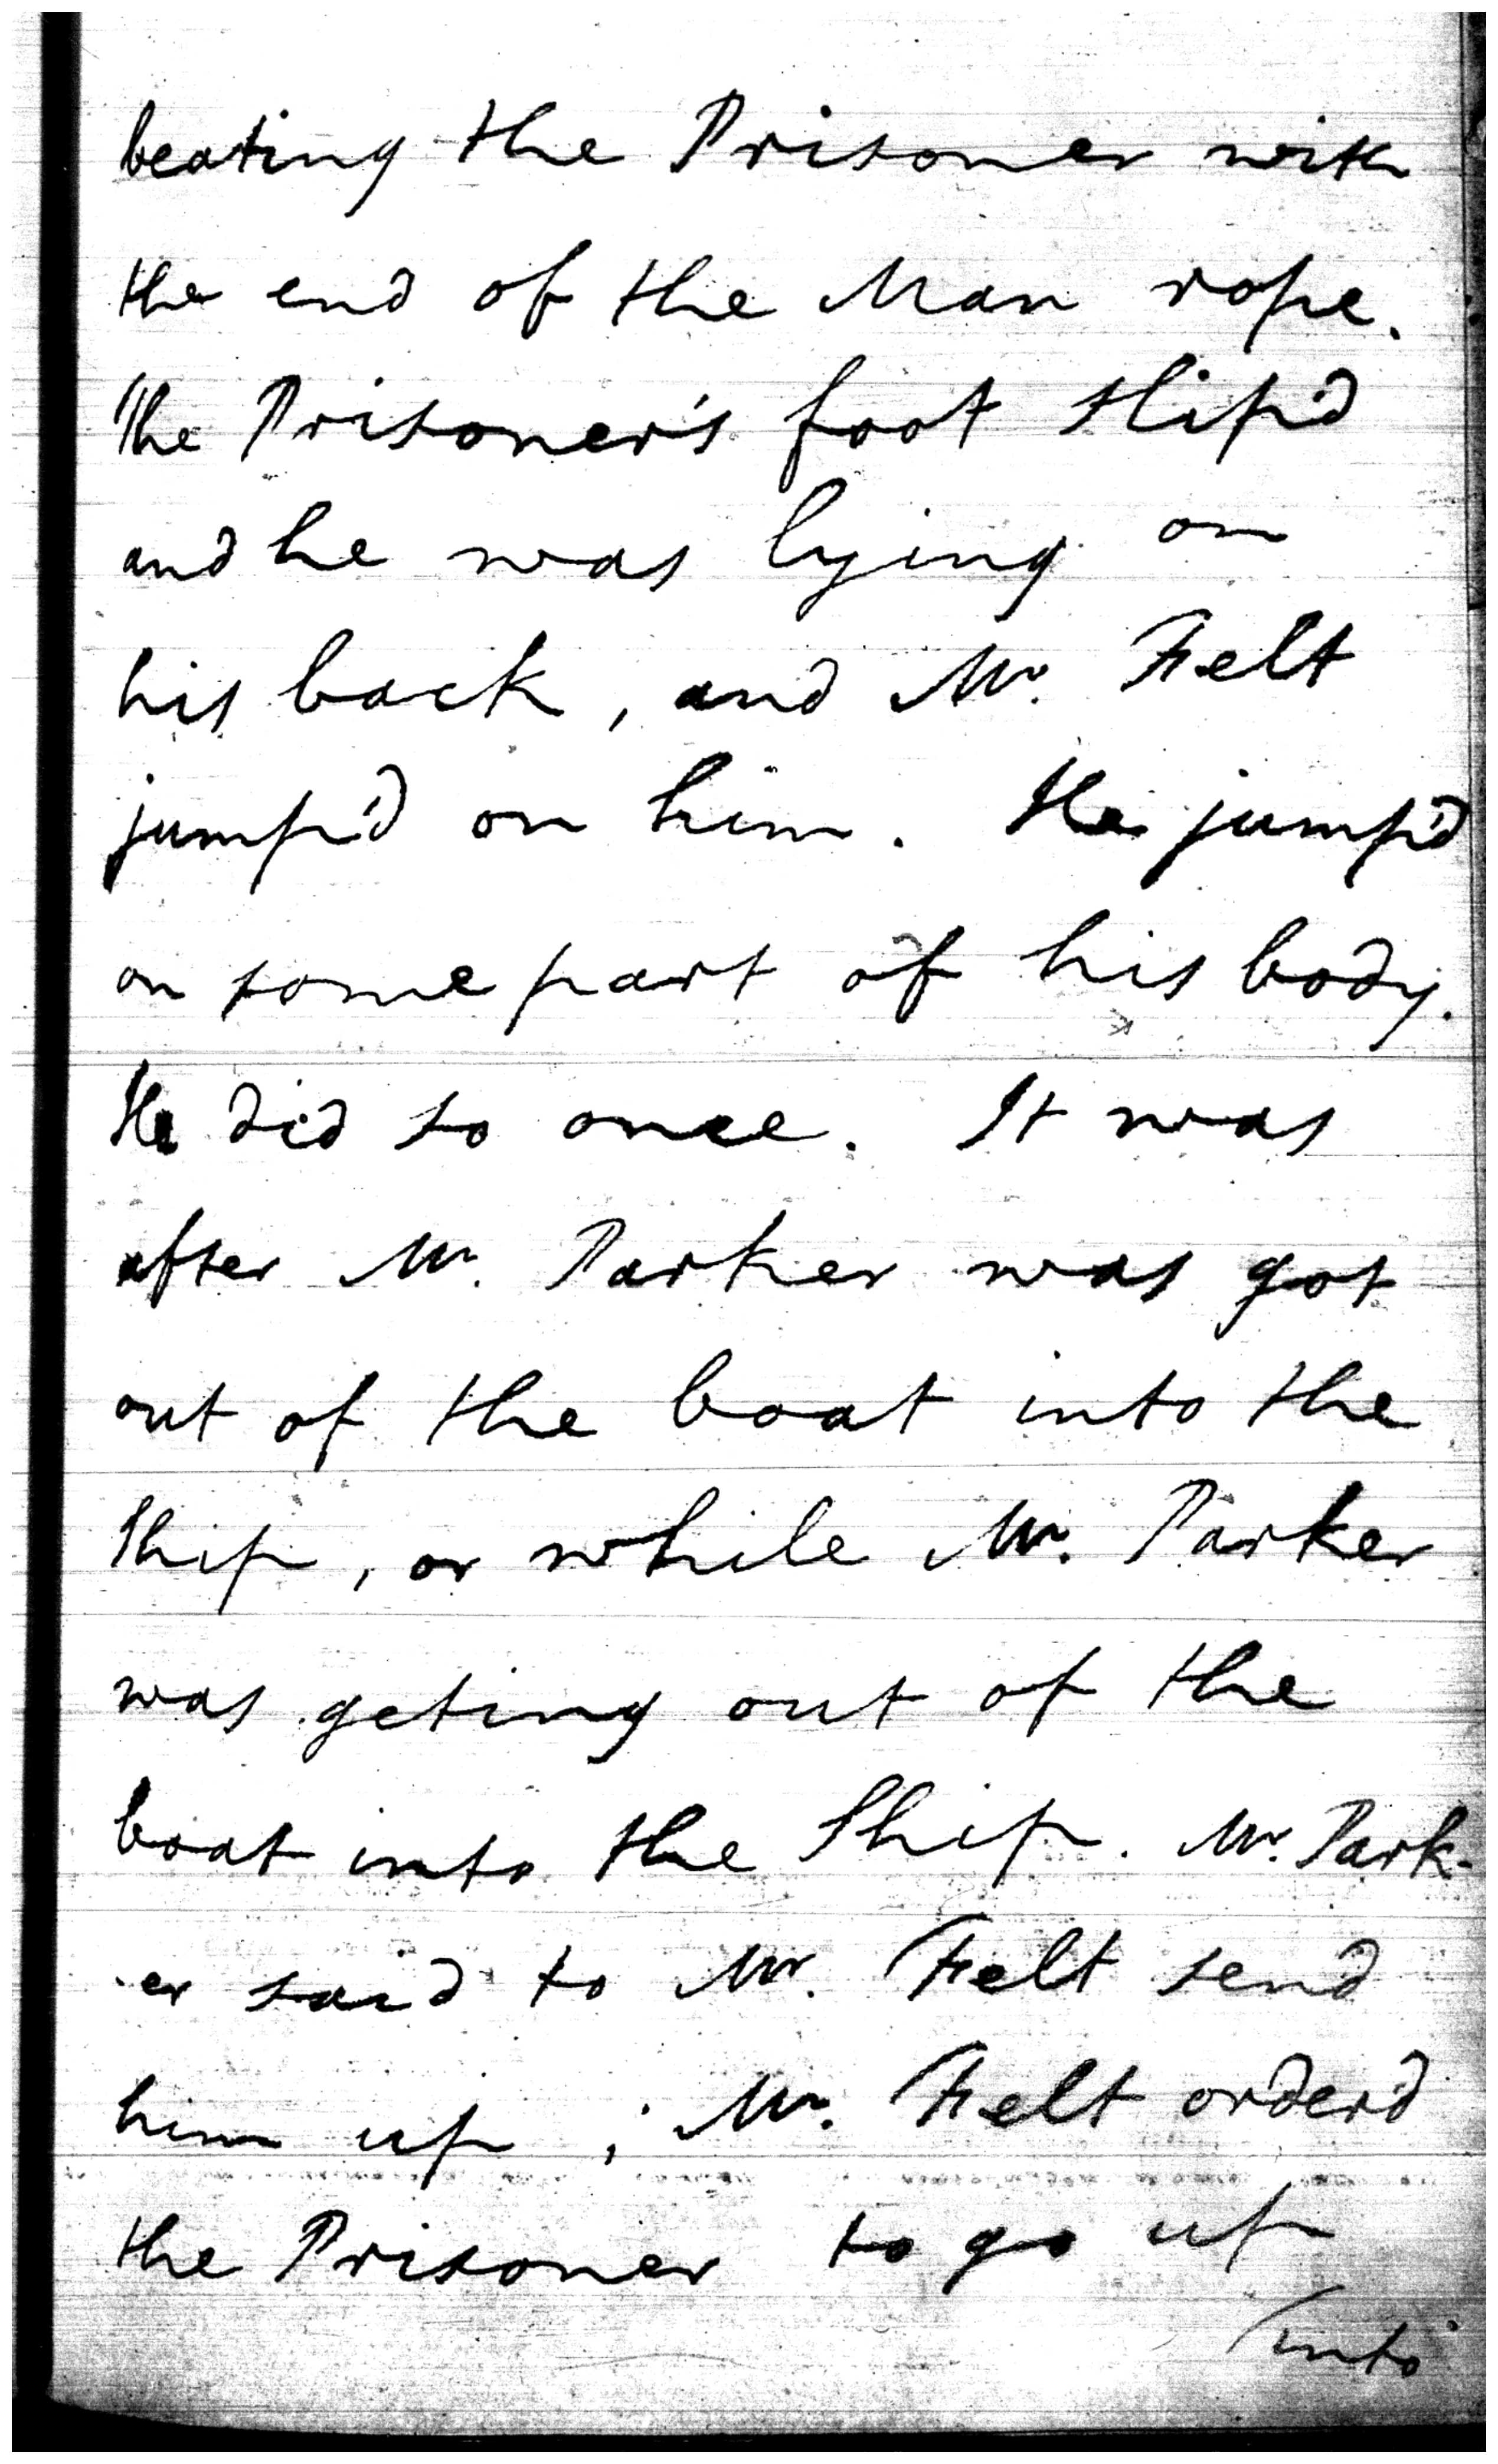 beating the Prisoner with
the end of the Man rope.
The Prisoner's foot slip'd
and he was lying on
his back, and Mr. Felt
jump'd on him. He jump'd
on some part of his body.
He did so once. It was
after Mr. Parker was got
out of the boat into the
Ship, or while Mr. Parker
was geting out of the
boat into the Ship. Mr. Park-
-er said to Mr. Felt send
him up; Mr. Felt order'd
the Prisoner to go up
into